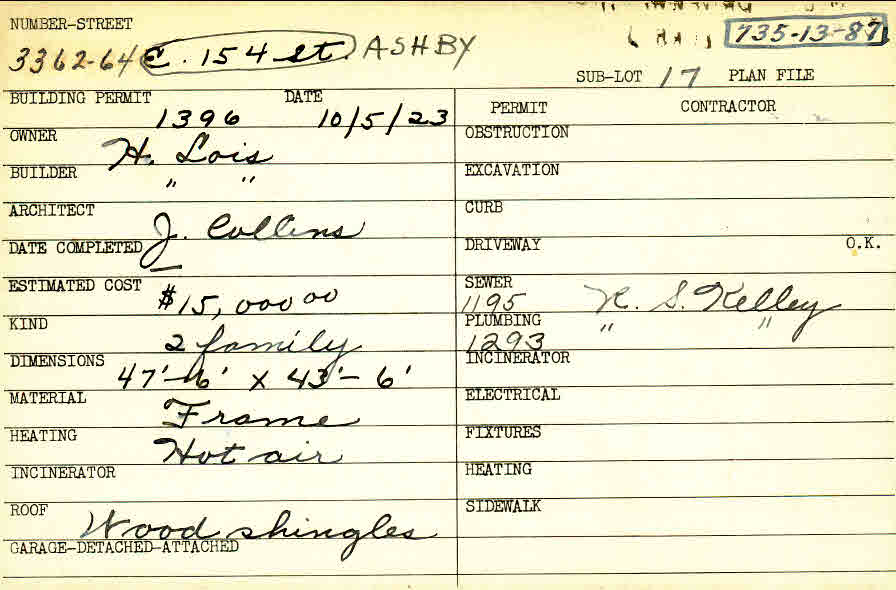 NUMBER-STREET
3362-64 E. 154 St. ASHBY
735-13-87
SUB-LOT 17 PLAN FILE
BUILDING PERMIT 1396 DATE 10/5/23
OWNER H. Lois
BUILDER " "
ARCHITECT J. Collins
DATE COMPLETED —
ESTIMATED COST $15,000 00
KIND 2 family
DIMENSIONS 47'-6' x 43'-6'
MATERIAL Frame
HEATING Hot air
INCINERATOR
ROOF Wood shingles
GARAGE-DETACHED-ATTACHED
PERMIT CONTRACTOR
OBSTRUCTION
EXCAVATION
CURB
DRIVEWAY O.K.
SEWER
1195 R. S. Kelley
PLUMBING
1293 " "
INCINERATOR
ELECTRICAL
FIXTURES
HEATING
SIDEWALK